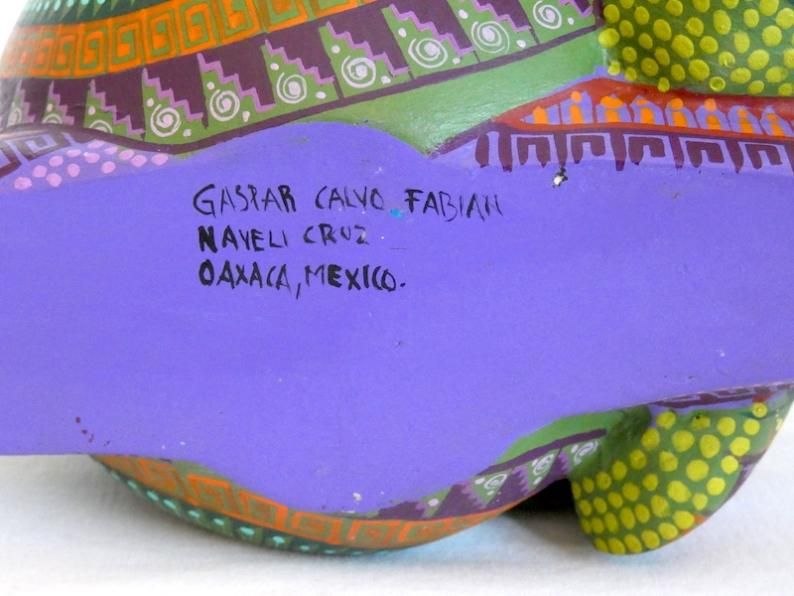 GASPAR CALVO FABIAN
NAYELI CRUZ
OAXACA, MEXICO.